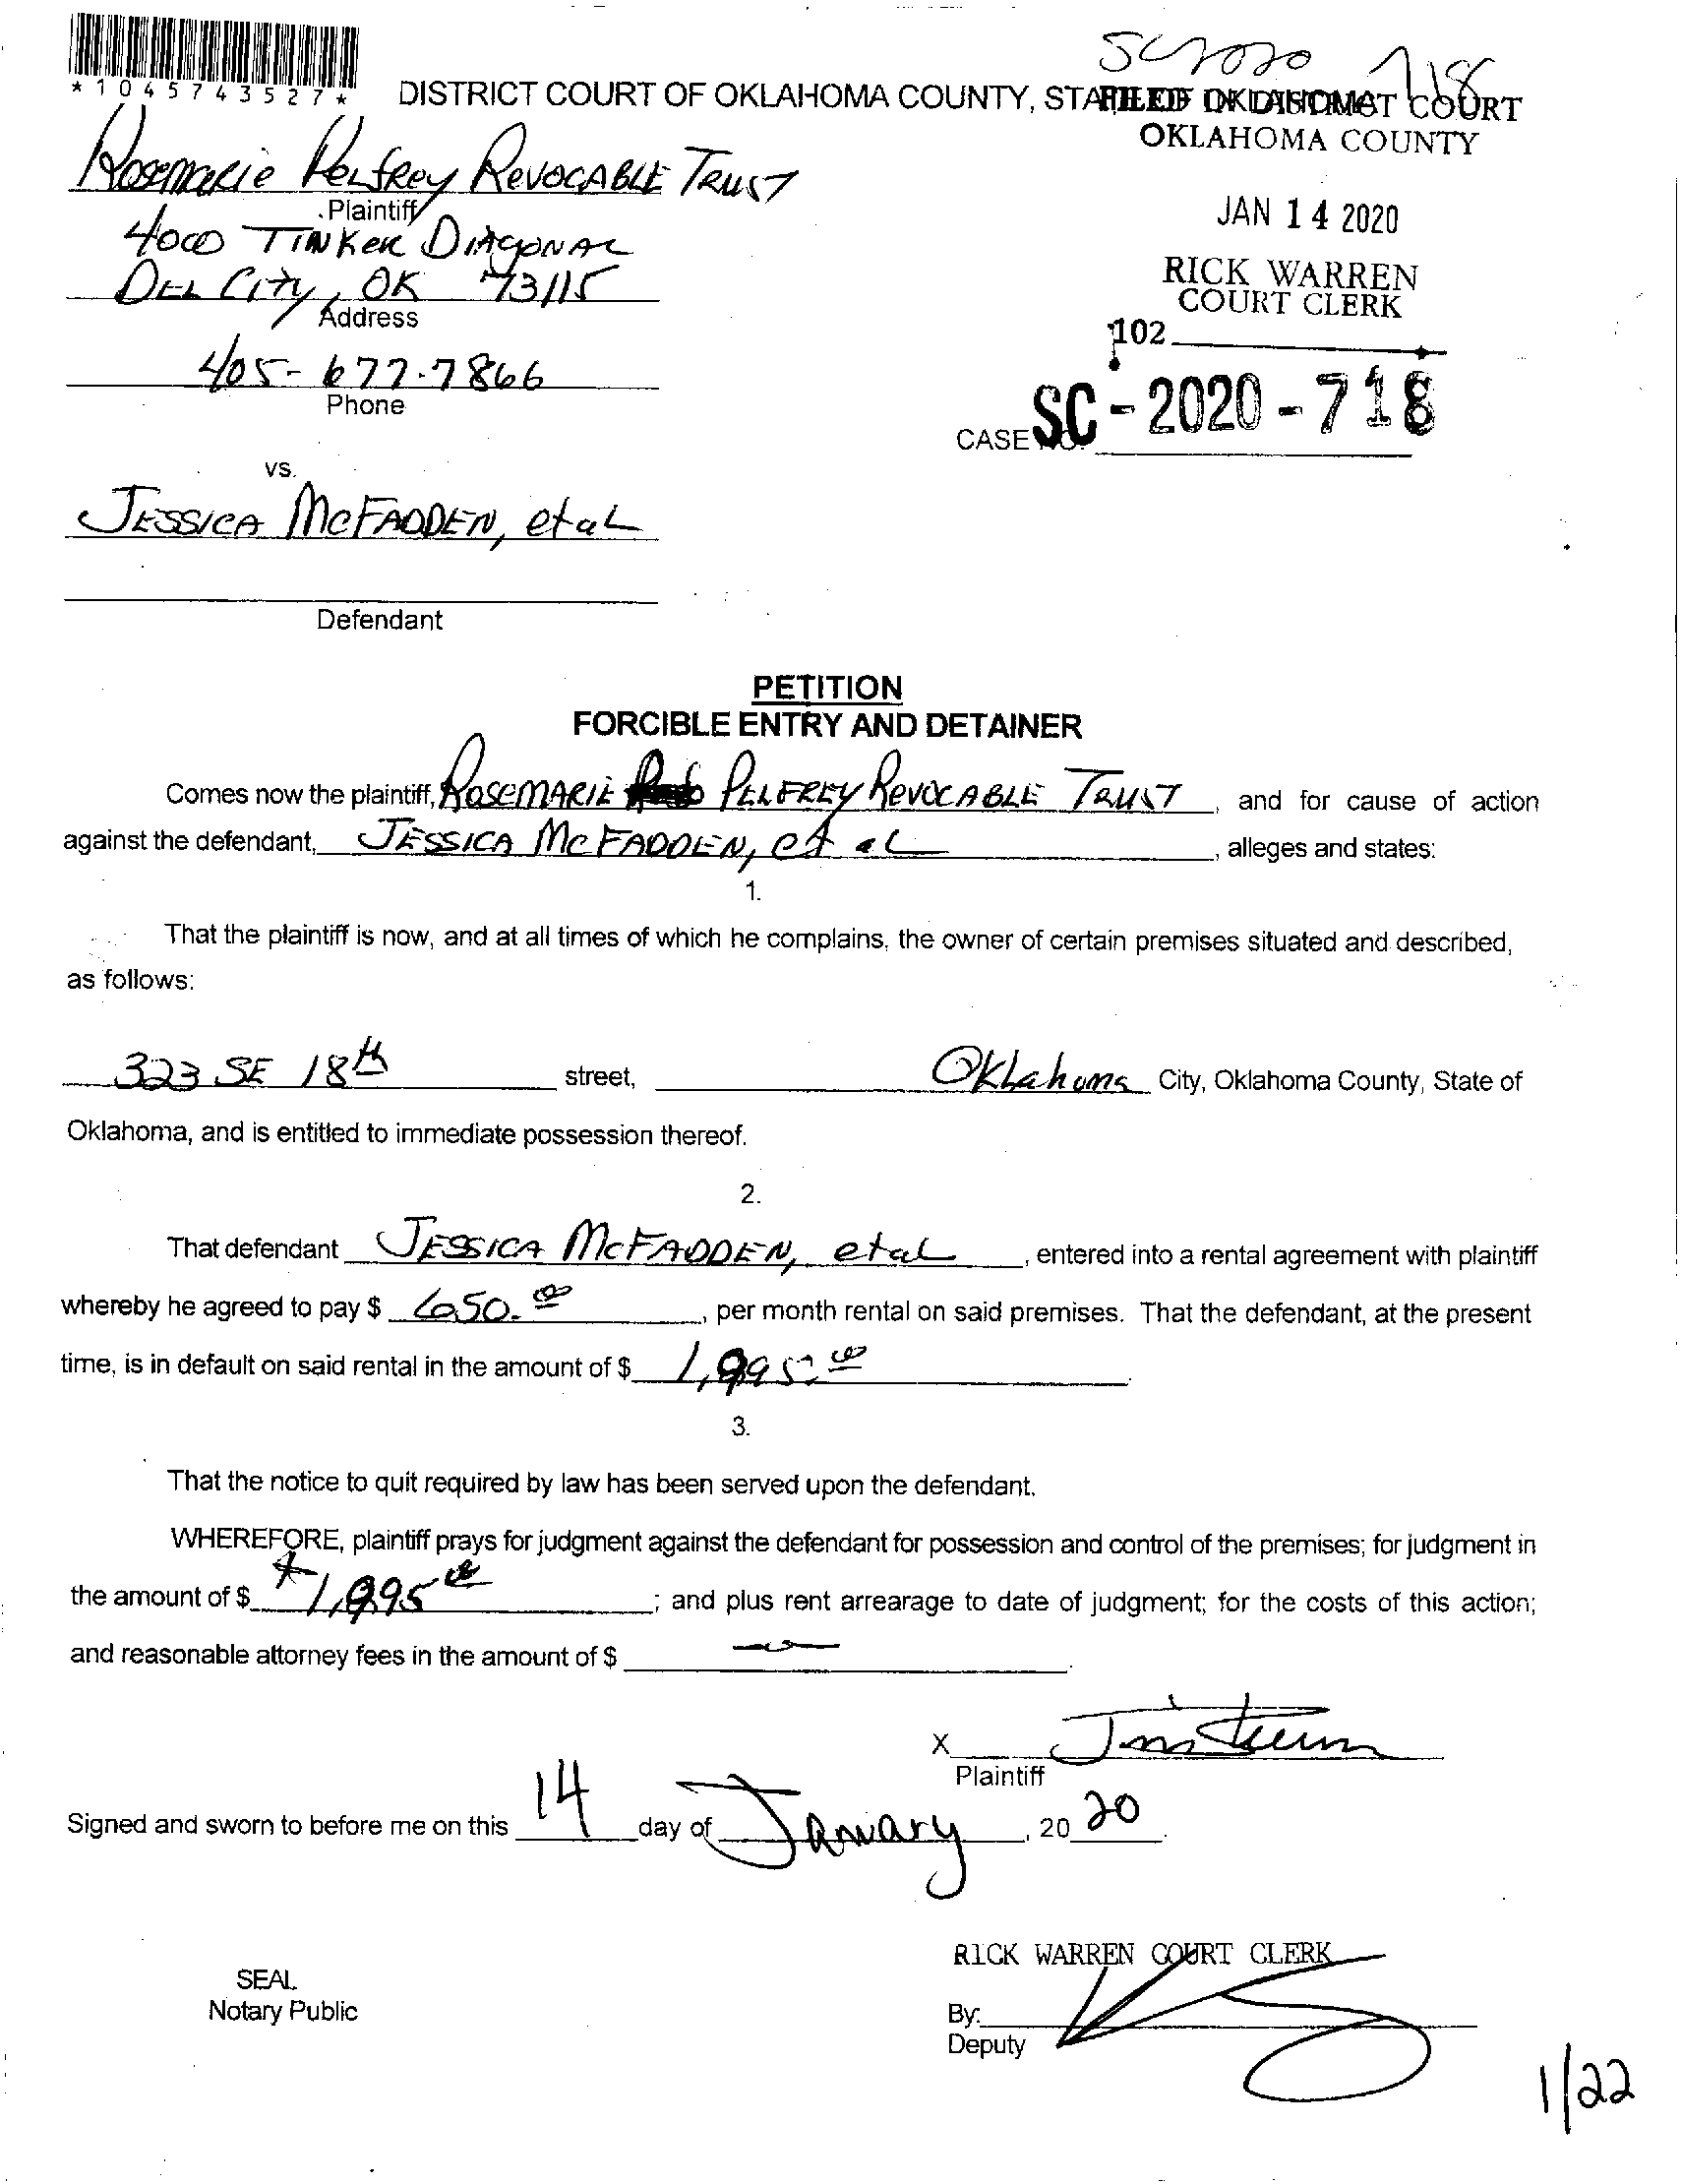 SC 2020 718
*1045743527*
DISTRICT COURT OF OKLAHOMA COUNTY, STATE OF OKLAHOMA
FILED IN DISTRICT COURT
OKLAHOMA COUNTY
JAN 14 2020
RICK WARREN
COURT CLERK
102
Rosemarie Pelfrey Revocable Trust
Plaintiff
4000 Tinker Diagonal
Del City, OK 73115
Address
405-677-7866
Phone
CASE NO. SC-2020-718
vs.
Jessica McFadden, et al
Defendant
PETITION
FORCIBLE ENTRY AND DETAINER
Comes now the plaintiff, Rosemarie Pelfrey Revocable Trust, and for cause of action
against the defendant, Jessica McFadden, et al, alleges and states:
1.
That the plaintiff is now, and at all times of which he complains, the owner of certain premises situated and described,
as follows:
323 SE 18th street, Oklahoma City, Oklahoma County, State of
Oklahoma, and is entitled to immediate possession thereof.
2.
That defendant Jessica McFadden, et al, entered into a rental agreement with plaintiff
whereby he agreed to pay $ 650.00, per month rental on said premises. That the defendant, at the present
time, is in default on said rental in the amount of $ 1,995.00.
3.
That the notice to quit required by law has been served upon the defendant.
WHEREFORE, plaintiff prays for judgment against the defendant for possession and control of the premises; for judgment in
the amount of $ 1,995.00; and plus rent arrearage to date of judgment; for the costs of this action;
and reasonable attorney fees in the amount of $
X
Plaintiff
Signed and sworn to before me on this 14 day of January, 2020.
RICK WARREN COURT CLERK
SEAL
Notary Public
By:
Deputy
1/22